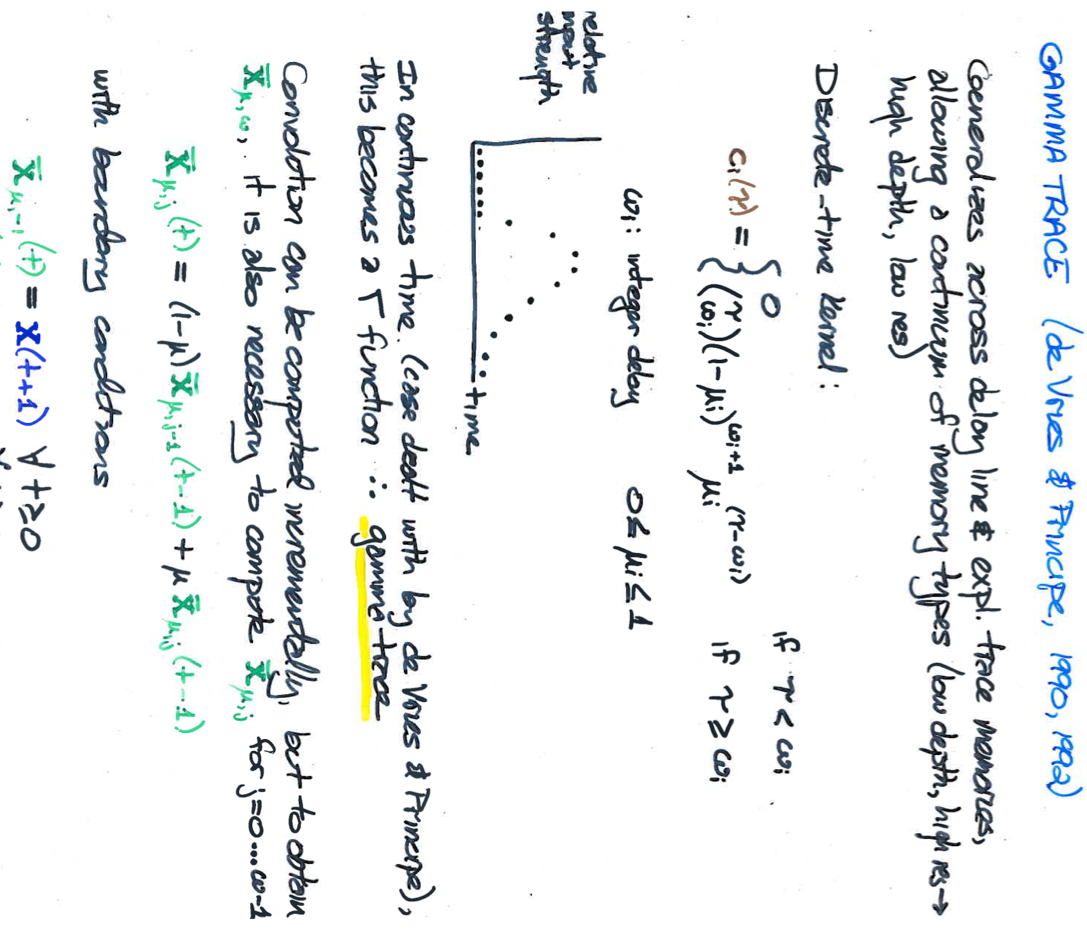 GAMMA TRACE (de Vries & Principe, 1990, 1992)
Generalizes across delay line & expl. trace memories,
allowing a continuum of memory types (low depth, high res →
high depth, low res)
Discrete-time kernel:
cᵢ(τ) = { 0 if τ < ωᵢ
{ (τ ωᵢ)(1-μᵢ)^(ωᵢ+1) μᵢ^(τ-ωᵢ) if τ ≥ ωᵢ
ωᵢ: integer delay 0 ≤ μᵢ ≤ 1
relative
input
strength
time
In continuos time (case dealt with by de Vries & Principe),
this becomes a Γ function ∴ gamma trace
Convolution can be computed incrementally, but to obtain
x̄_μ,ω, it is also necessary to compute x̄_μ,j for j=0...ω-1
x̄_μ,j(t) = (1-μ) x̄_μ,j-1(t-1) + μ x̄_μ,j(t-1)
with boundary conditions
x̄_μ,-1(t) = x(t+1) ∀ t≥0